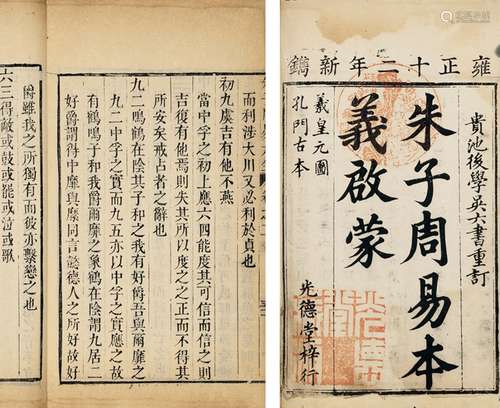 雍正十二年新鐫
貴池後學吳六書重訂
朱子周易本
義啟蒙
羲皇元圖
孔門古本
光德堂梓行
而利涉大川又必利於貞也
初九虞吉有他不燕
當中孚之初上應六四能度其可信而信之則
吉復有他焉則失其所以度之之正而不得其
所安矣戒占者之辭也
九二鳴鶴在陰其子和之我有好爵吾與爾靡之
九二中孚之實而九五亦以中孚之實應之故
有鶴鳴子和我爵爾靡之象鶴在陰謂九居二
好爵謂得中靡與縻同言懿德人之所好故好
爵雖我之所獨有而彼亦繫戀之也
六三得敵或鼓或罷或泣或歌